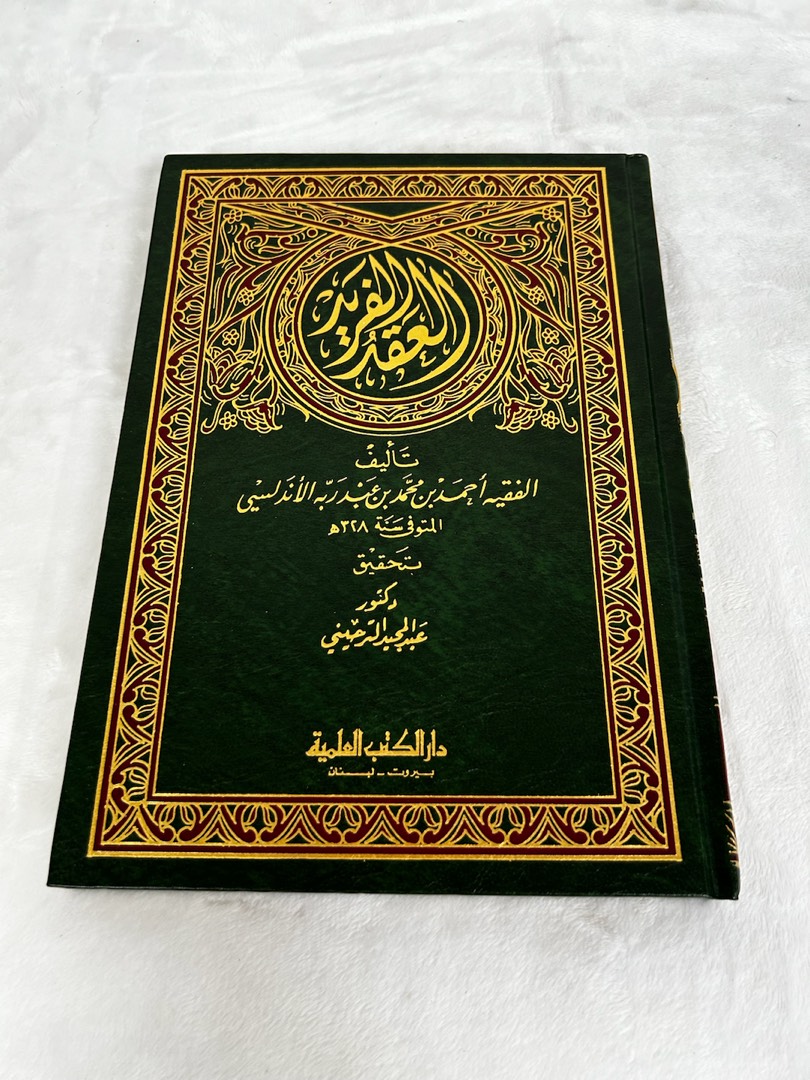 العقد الفريد
تأليف
الفقيه أحمد بن محمد بن عبد ربه الأندلسي
المتوفى سنة ٣٢٨ه
بتحقيق
دكتور
عبد المجيد الترحيني
دار الكتب العلمية
بيروت - لبنان